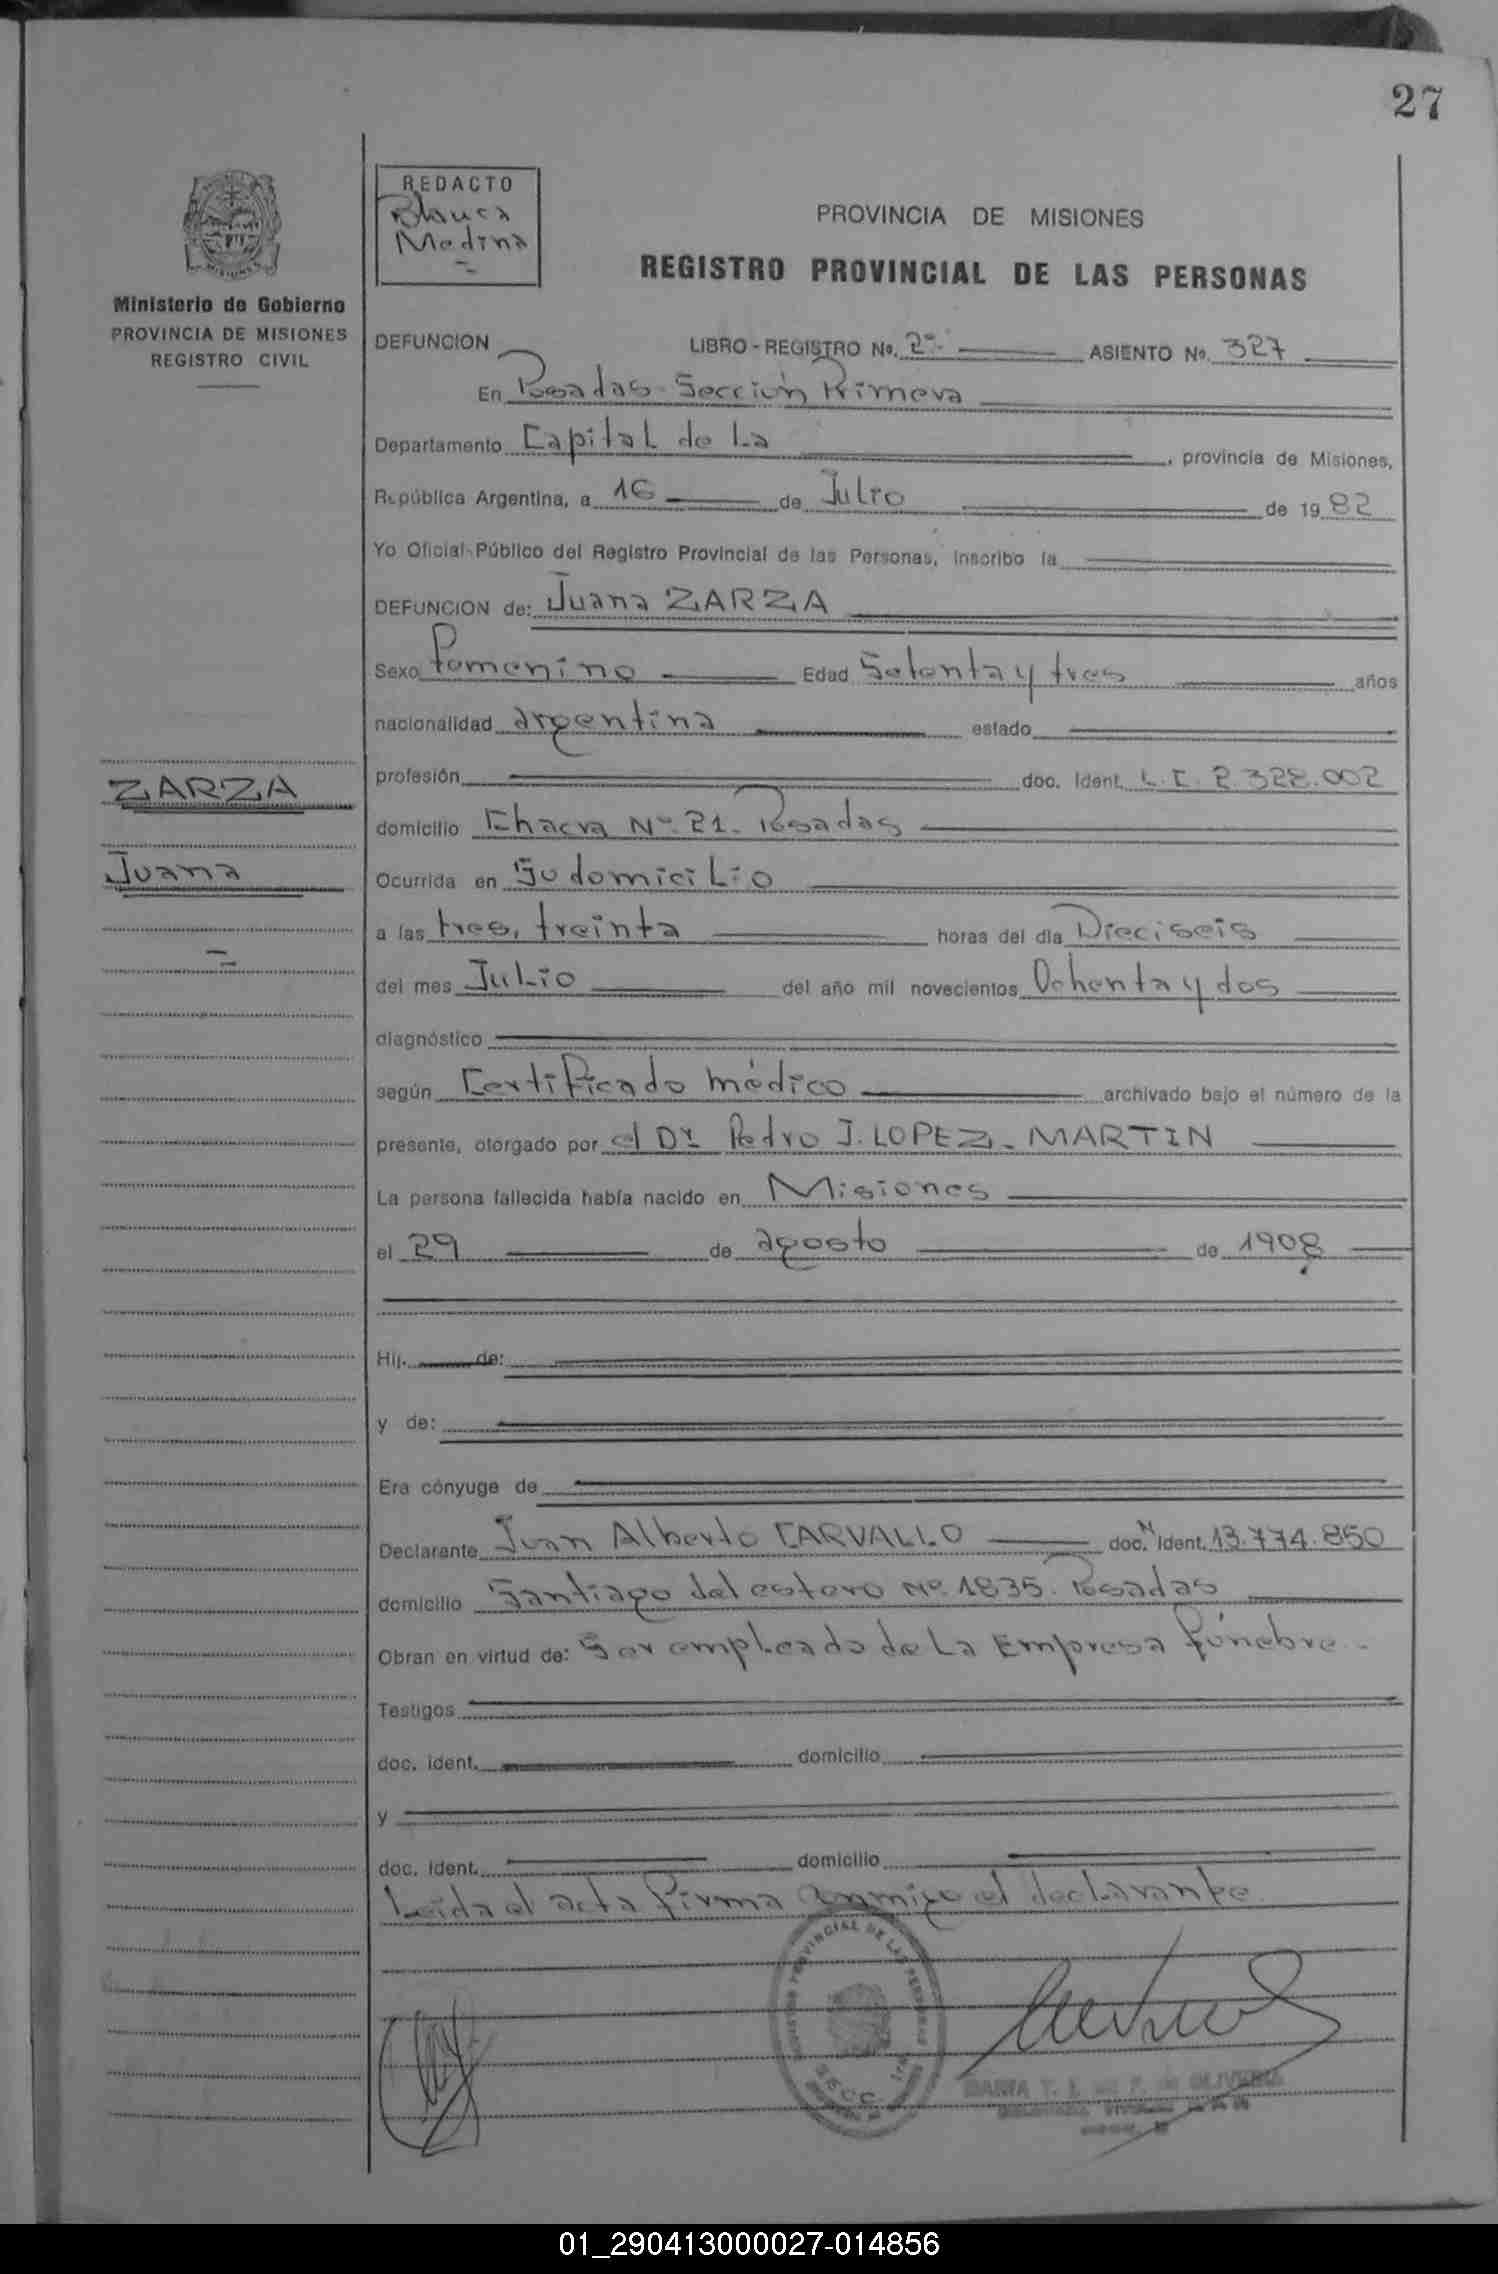 27
REDACTO
Blanca
Medina
PROVINCIA DE MISIONES
REGISTRO PROVINCIAL DE LAS PERSONAS
Ministerio de Gobierno
PROVINCIA DE MISIONES
REGISTRO CIVIL
DEFUNCION LIBRO - REGISTRO No. 2º ASIENTO No. 327
En Posadas Sección Primera
Departamento Capital de La , provincia de Misiones,
República Argentina, a 16 de Julio de 1982
Yo Oficial Público del Registro Provincial de las Personas, inscribo la
DEFUNCION de: Juana ZARZA
Sexo Femenino Edad Setenta y tres años
nacionalidad argentina estado
profesión doc. Ident. L.C. 2.328.002
domicilio Chacra Nº 21. Posadas
Ocurrida en Su domicilio
a las tres, treinta horas del día Dieciseis
del mes Julio del año mil novecientos Ochenta y dos
diagnóstico
según Certificado médico archivado bajo el número de la
presente, otorgado por el Dr. Pedro J. LOPEZ - MARTIN
La persona fallecida había nacido en Misiones
el 29 de agosto de 1908
Hij. de:
y de:
Era cónyuge de
Declarante Juan Alberto CARVALLO doc. N Ident. 13.774.850
domicilio Santiago del estero Nº 1835. Posadas
Obran en virtud de: Ser empleado de La Empresa fúnebre.-
Testigos
doc. ident. domicilio
y
doc. ident. domicilio
Leida el acta firma conmigo el declarante
ZARZA
Juana
REGISTRO PROVINCIAL DE LAS PERSONAS
SECC. 1ra
01_290413000027-014856